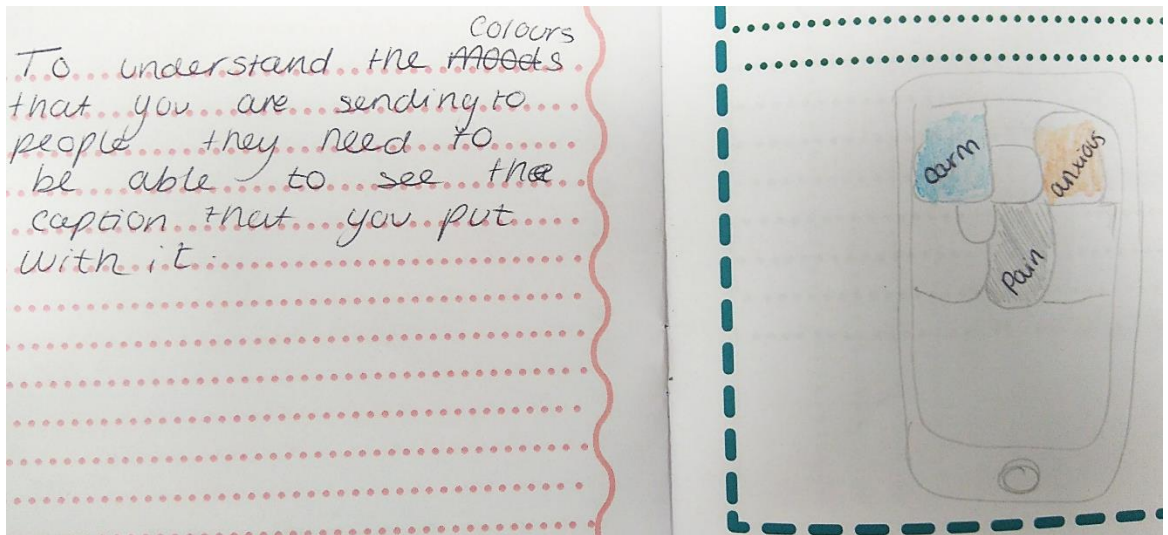 Colours
To understand the moods
that you are sending to
people they need to
be able to see the
caption that you put
with it.
calm
anxious
Pain